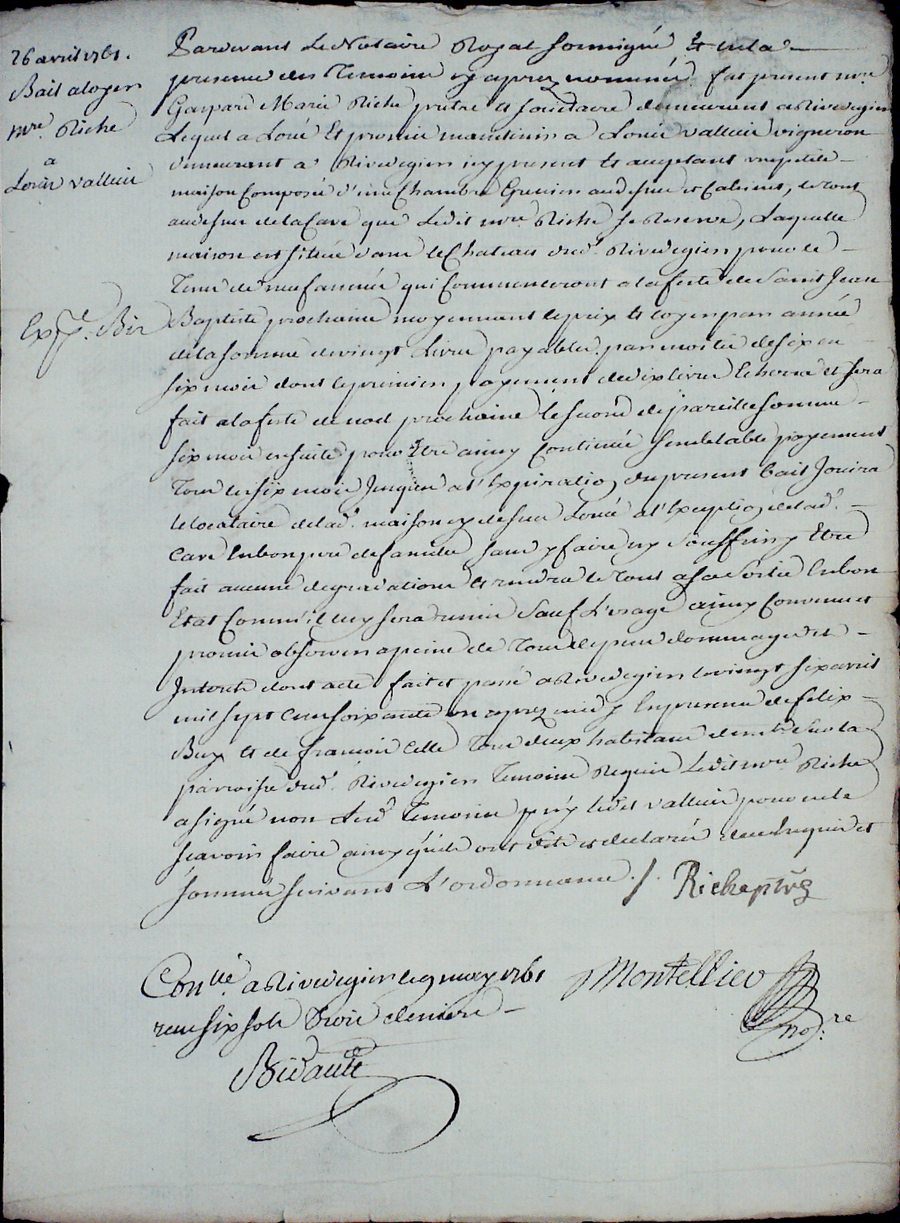 26 avril 1761.
Bail a loyer
mre Riche
a
Louis valluis
Exp. Bir
Pardevant Le Notaire Royal soussigné Et en la
presence des Temoins cy aprez nommés fut present mre
Gaspard Marie Riche pretre et societaire demeurant a Rivedegier
Lequel a Loué Et promis maintenir a Louis valluis vigneron
demeurant a Rivedegier icy present Et acceptant une petite
maison Composée d'une Chambre Grenier audessus et Cabinet, le tout
audessus de la Cave que Ledit mre Riche se Reserve, Laquelle
maison est située dans le Chateau dud. Rivedegier pour le
Terme de neuf années qui Commenceront a la feste de Saint Jean
Baptiste prochaine moyennant le prix et loyer par année
de la somme de vingt Livres payables par moitié de six en
six mois dont le premier payement de dix livres Echerra et sera
fait a la feste de noel prochaine le second de pareille somme
six mois ensuite pour Etre ainsy Continué semblable payement
Tous les six mois Jusques a l'Expiration du present bail Jouira
le locataire de lad. maison cy dessus Louée a l'Exception de lad.
Cave En bon pere de famille sans y faire ny Souffrir y Etre
fait aucune degradations et rendra le tout a sa Sortie En bon
Etat Comm'il luy sera remis Sauf L'usage ainsy Convenu et
promis observer a peine de Tous depens dommages et
Interets dont acte fait et passé a Rivedegier le vingt six avril
mil sept cens soixante un aprez midy En presence de felix
Bux et de francois Celle Tous deux habitans de la
parroisse dud. Rivedegier Temoins Requis Ledit mre Riche
a signé non Lesd. Temoins ny led. valluis pour ne le
scavoir faire ainsy qu'ils ont dit et declaré de ce Enquis et
sommés suivant L'ordonnance ./. Riche ptre
Conllé a Rivedegier le 9 may 1761
reçu six sols Trois deniers
Montellier
nore
Bidault